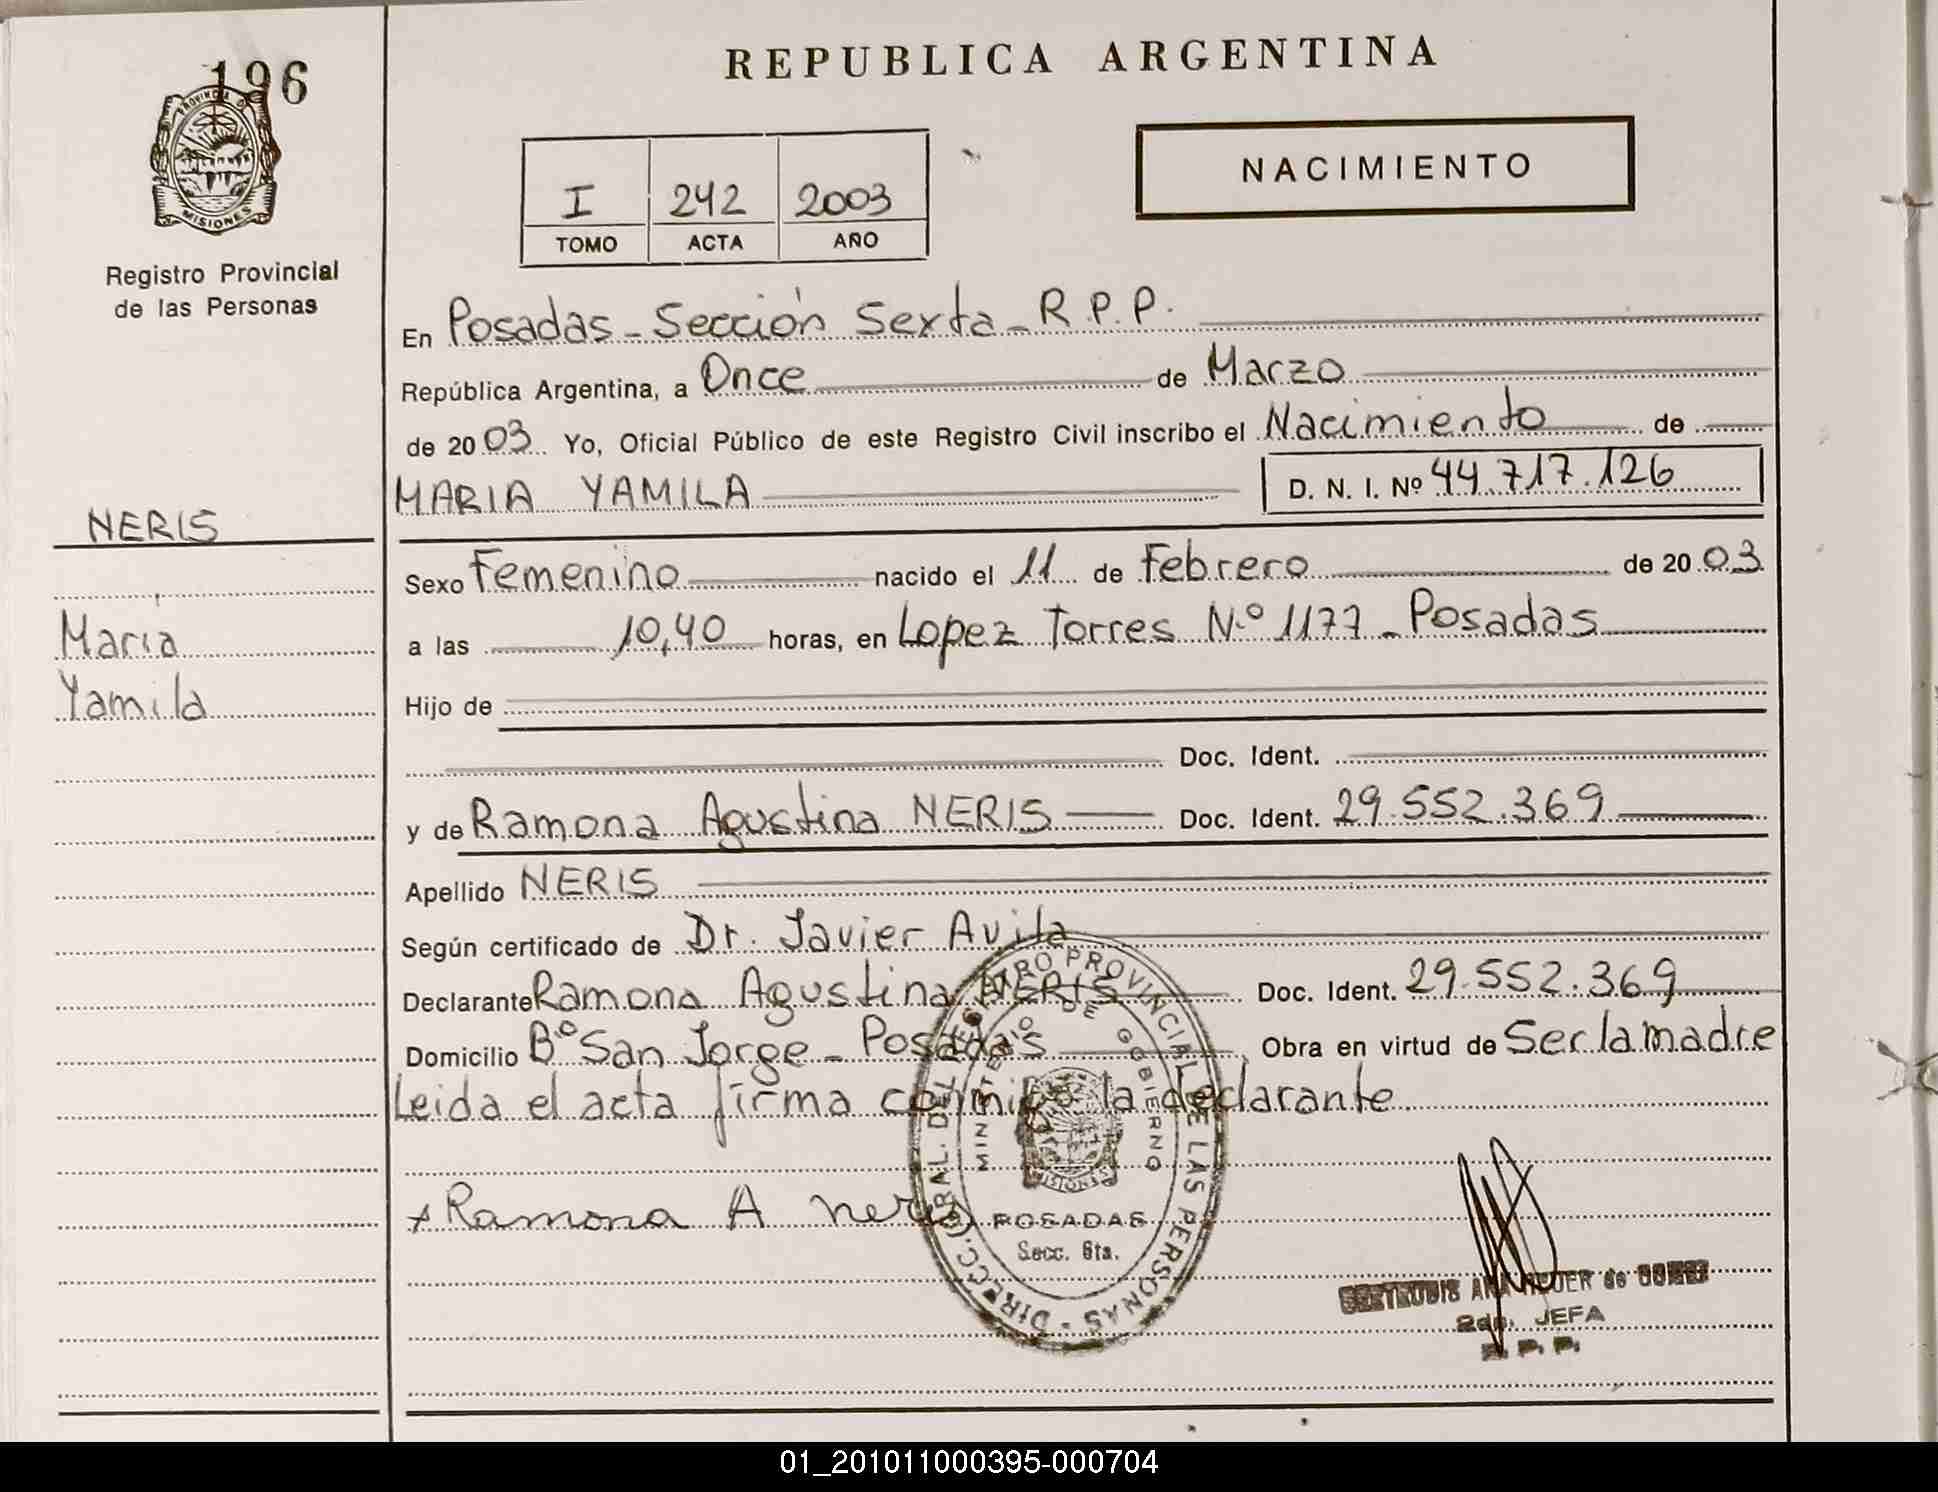 196
PROVINCIA DE
MISIONES
Registro Provincial
de las Personas
NERIS
Maria
Yamila
REPUBLICA ARGENTINA
I 242 2003
TOMO ACTA AÑO
NACIMIENTO
En Posadas - Sección Sexta - R.P.P.
República Argentina, a Once de Marzo
de 20 03 Yo, Oficial Público de este Registro Civil inscribo el Nacimiento de
MARIA YAMILA D. N. I. Nº 44.717.126
Sexo Femenino nacido el 11 de Febrero de 20 03
a las 10,40 horas, en Lopez Torres N.º 1177 - Posadas
Hijo de
Doc. Ident.
y de Ramona Agustina NERIS Doc. Ident. 29.552.369
Apellido NERIS
Según certificado de Dr. Javier Avila
Declarante Ramona Agustina NERIS Doc. Ident. 29.552.369
Domicilio Bº San Jorge - Posadas Obra en virtud de Ser la madre
Leida el acta firma conmigo la declarante
x Ramona A neris
DIRECC. GRAL. DEL REGISTRO PROVINCIAL DE LAS PERSONAS -
MINISTERIO DE GOBIERNO
MISIONES
POSADAS
Secc. 6ta.
de GOMEZ
2da. JEFA
R. P. P.
01_201011000395-000704